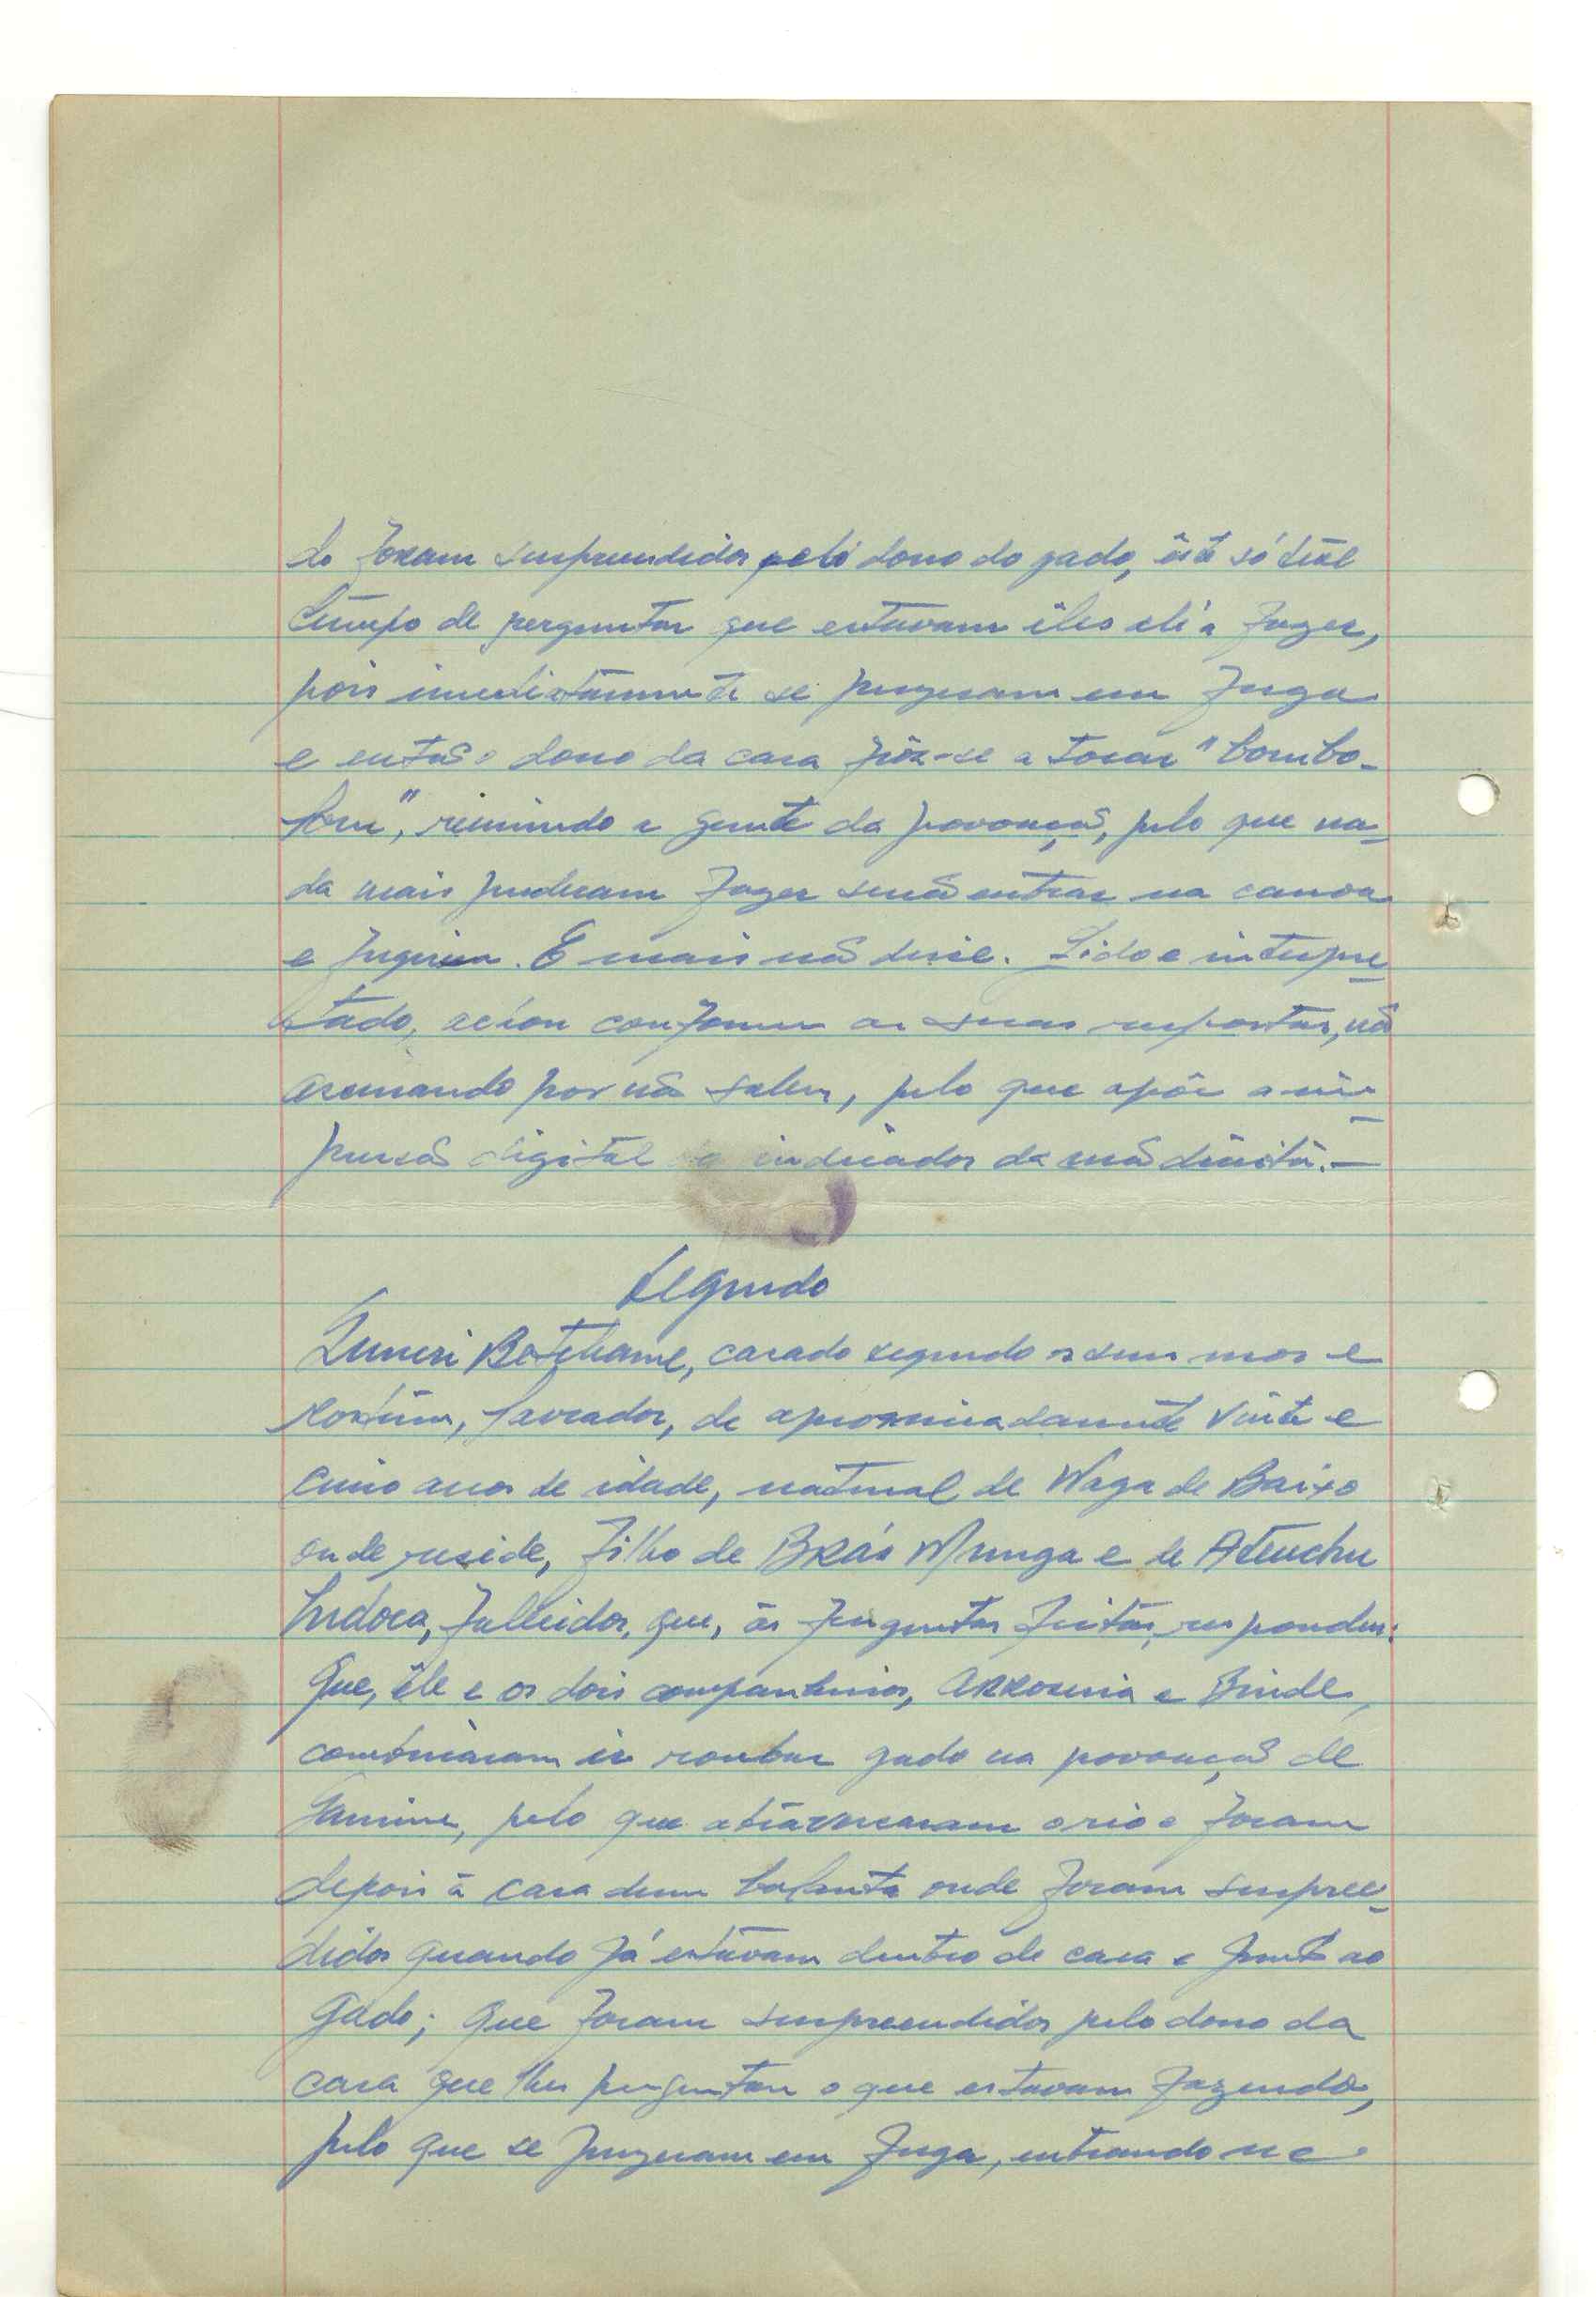 do foram surpreendidos pelo dono do gado, êste só teve
tempo de perguntar que estavam êles ali a fazer,
pois imediatamente se puzeram em fuga
e então o dono da casa pôz-se a tocar "bombo-
lom", reunindo a gente da povoação, pelo que na-
da mais puderam fazer senão entrar na canoa
e fugirem. E mais não disse. Lido e interpre-
tado, achou conforme as suas respostas, não
assinando por não saber, pelo que apôs a im-
pressão digital do indicador da mão direita.—
Segundo
Betchame, casado segundo os seus usos e
costumes, lavrador, de aproximadamente vinte e
cinco anos de idade, natural de Waga de Baixo
onde reside, filho de Brás Munga e de Atenchu
Indoca, falecidos, que, às perguntas feitas, respondeu:
Que, êle e os dois companheiros, e
combinaram ir roubar gado na povoação de
pelo que atravessaram o rio e foram
depois à casa dum balanta onde foram surpreen-
didos quando já estavam dentro de casa e junto ao
gado; que foram surpreendidos pelo dono da
casa que lhes perguntou o que estavam fazendo,
pelo que se puzeram em fuga, entrando na